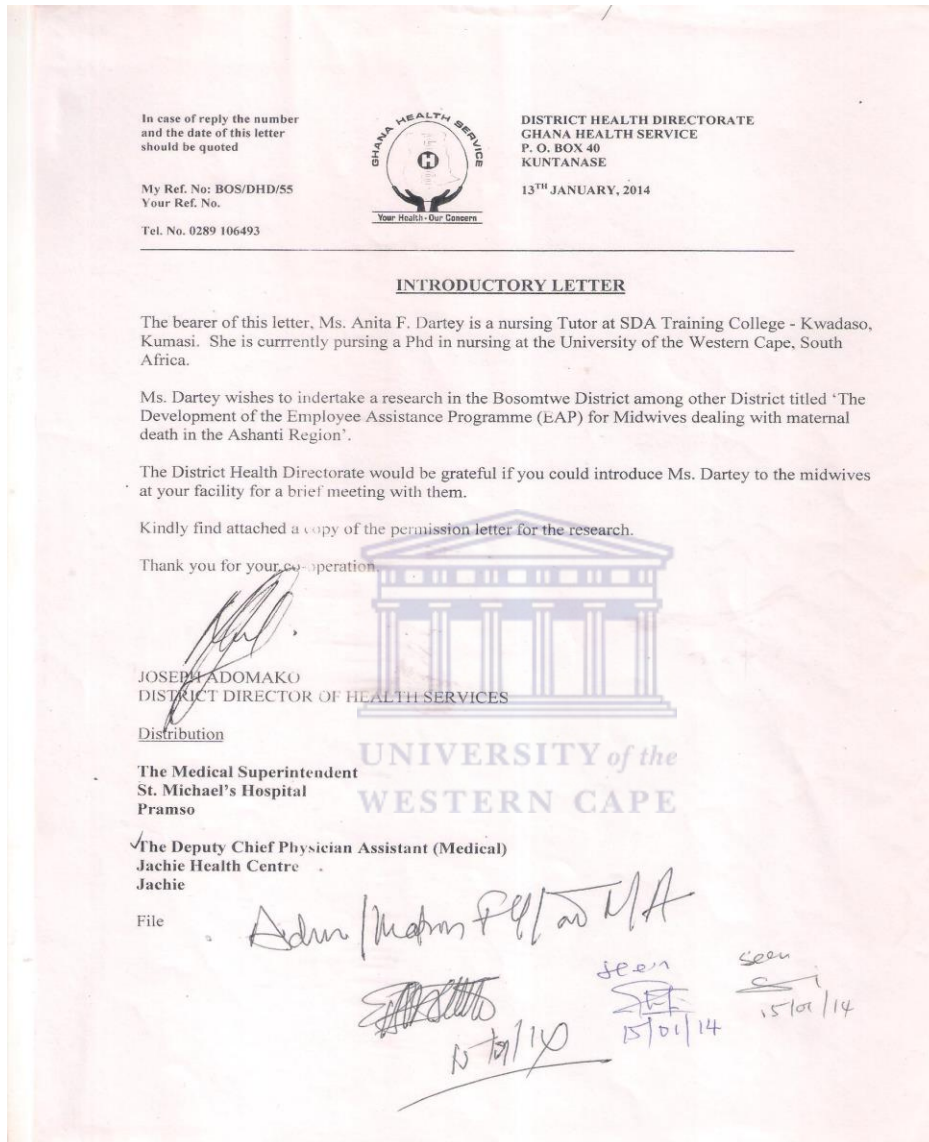 In case of reply the number
and the date of this letter
should be quoted
My Ref. No: BOS/DHD/55
Your Ref. No.
Tel. No. 0289 106493
GHANA HEALTH SERVICE
H
Your Health - Our Concern
DISTRICT HEALTH DIRECTORATE
GHANA HEALTH SERVICE
P. O. BOX 40
KUNTANASE
13TH JANUARY, 2014
INTRODUCTORY LETTER
The bearer of this letter, Ms. Anita F. Dartey is a nursing Tutor at SDA Training College - Kwadaso,
Kumasi. She is currrently pursing a Phd in nursing at the University of the Western Cape, South
Africa.
Ms. Dartey wishes to indertake a research in the Bosomtwe District among other District titled ‘The
Development of the Employee Assistance Programme (EAP) for Midwives dealing with maternal
death in the Ashanti Region’.
The District Health Directorate would be grateful if you could introduce Ms. Dartey to the midwives
at your facility for a brief meeting with them.
Kindly find attached a copy of the permission letter for the research.
Thank you for your co-operation.
JOSEPH ADOMAKO
DISTRICT DIRECTOR OF HEALTH SERVICES
Distribution
The Medical Superintendent
St. Michael's Hospital
Pramso
UNIVERSITY of the
WESTERN CAPE
The Deputy Chief Physician Assistant (Medical)
Jachie Health Centre
Jachie
File
seen
15/01/14
seen
15/01/14